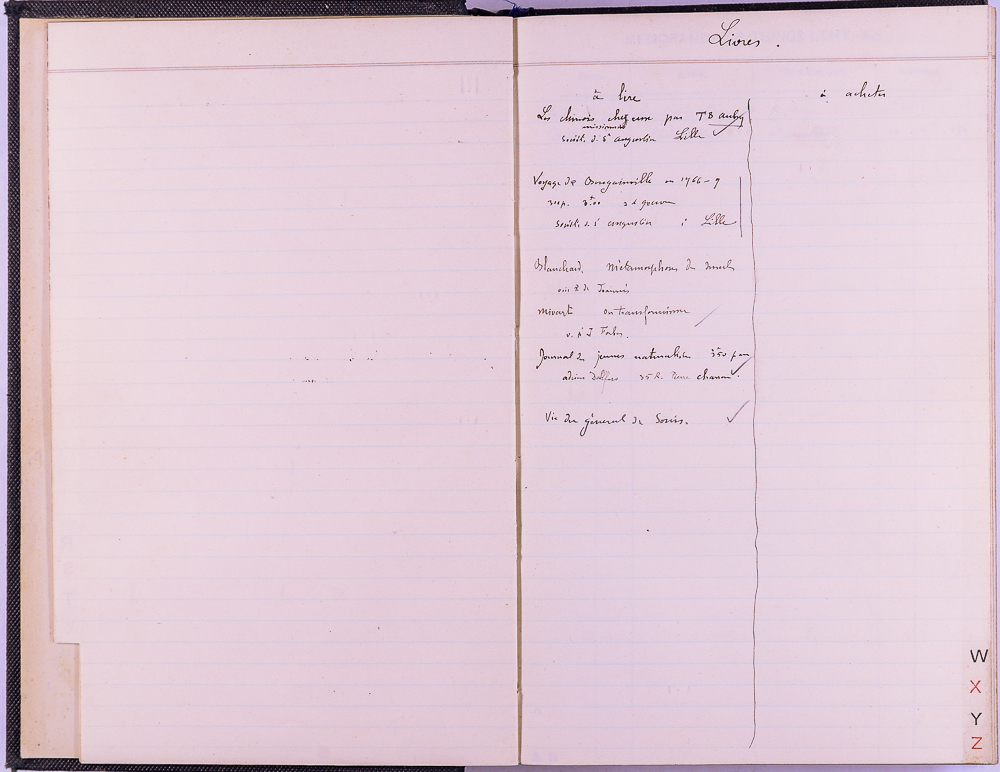 Livres.
à lire
à acheter
Les chinois chez eux par J B Aubry
missionnaire
Société de St Augustin Lille
Voyage de Bougainville en 1766-9
Société de St Augustin à Lille
Blanchard. Métamorphoses des insectes
de Joannis
Mivart on transformisme
v. p. J
Journal des jeunes naturalistes 350 par
adrien Dollfus 35 R. Pierre charron.
Vie du général de Sonis.
W
X
Y
Z